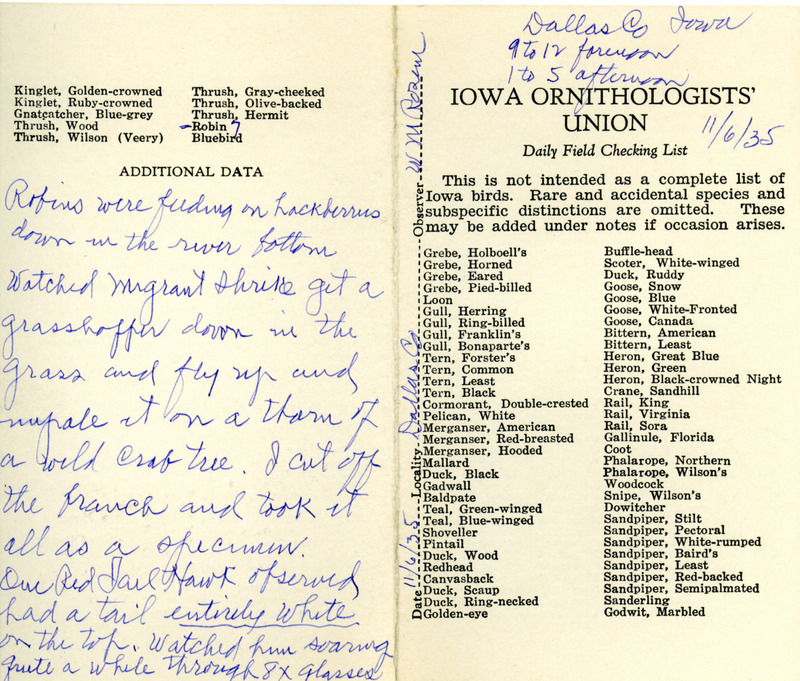 Kinglet, Golden-crowned
Kinglet, Ruby-crowned
Gnatcatcher, Blue-grey
Thrush, Wood
Thrush, Wilson (Veery)
Thrush, Gray-cheeked
Thrush, Olive-backed
Thrush, Hermit
-Robin 7
Bluebird
ADDITIONAL DATA
Robins were feeding on hackberries
down in the river bottom
Watched Migrant Shrike get a
grasshopper down in the
grass and fly up and
impale it on a thorn of
a wild crab tree. I cut off
the branch and took it
all as a specimen.
One Red Tail Hawk observed
had a tail entirely white
on the top. Watched him soaring
quite a while through 8X glasses
Date 11/6/35 Locality Dallas Co Observer W M Rosen
Dallas Co Iowa
9 to 12 forenoon
1 to 5 afternoon
IOWA ORNITHOLOGISTS'
UNION
11/6/35
Daily Field Checking List
This is not intended as a complete list of
Iowa birds. Rare and accidental species and
subspecific distinctions are omitted. These
may be added under notes if occasion arises.
Grebe, Holboell's
Grebe, Horned
Grebe, Eared
Grebe, Pied-billed
Loon
Gull, Herring
Gull, Ring-billed
Gull, Franklin's
Gull, Bonaparte's
Tern, Forster's
Tern, Common
Tern, Least
Tern, Black
Cormorant, Double-crested
Pelican, White
Merganser, American
Merganser, Red-breasted
Merganser, Hooded
Mallard
Duck, Black
Gadwall
Baldpate
Teal, Green-winged
Teal, Blue-winged
Shoveller
Pintail
Duck, Wood
Redhead
Canvasback
Duck, Scaup
Duck, Ring-necked
Golden-eye
Buffle-head
Scoter, White-winged
Duck, Ruddy
Goose, Snow
Goose, Blue
Goose, White-Fronted
Goose, Canada
Bittern, American
Bittern, Least
Heron, Great Blue
Heron, Green
Heron, Black-crowned Night
Crane, Sandhill
Rail, King
Rail, Virginia
Rail, Sora
Gallinule, Florida
Coot
Phalarope, Northern
Phalarope, Wilson's
Woodcock
Snipe, Wilson's
Dowitcher
Sandpiper, Stilt
Sandpiper, Pectoral
Sandpiper, White-rumped
Sandpiper, Baird's
Sandpiper, Least
Sandpiper, Red-backed
Sandpiper, Semipalmated
Sanderling
Godwit, Marbled